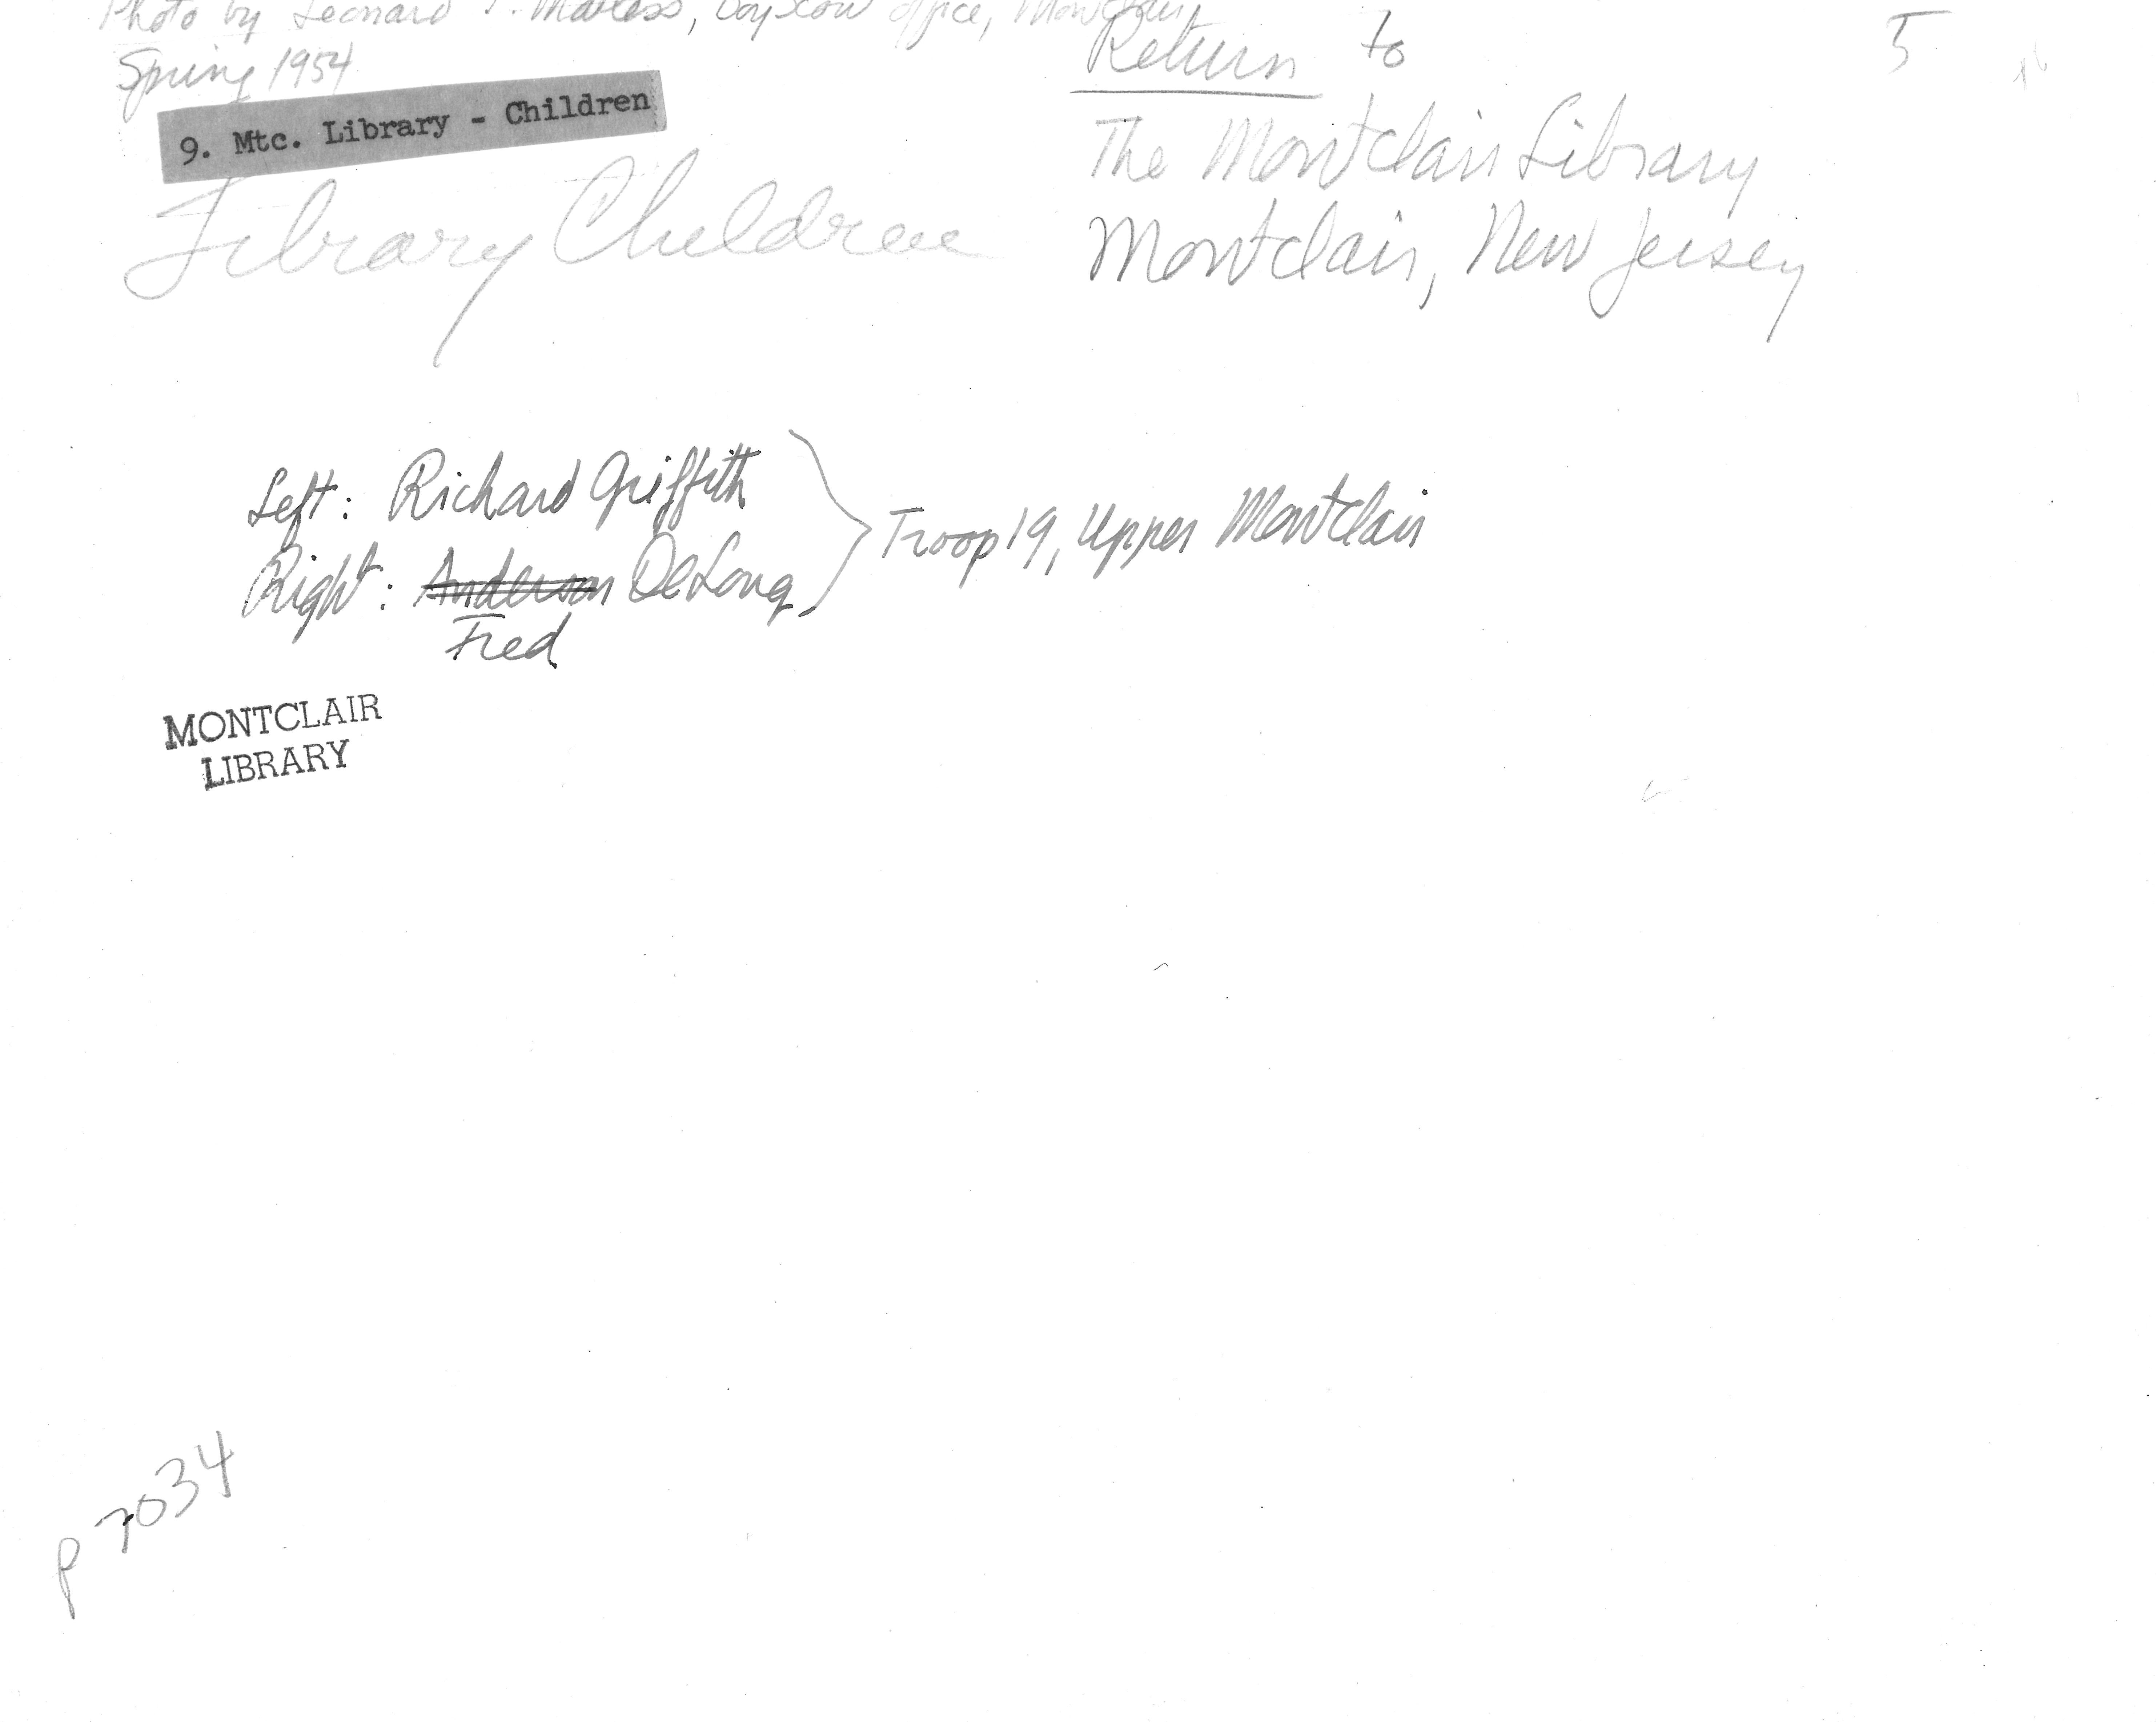 Photo by Leonard J. Boy Scout Office, Montclair
Spring 1954
9. Mtc. Library - Children
Library Children
Return to
The Montclair Library
Montclair, New Jersey
5
Left: Richard Griffith
Right: Anderson DeLong,
Fred
Troop 19, Upper Montclair
MONTCLAIR
LIBRARY
P 7034